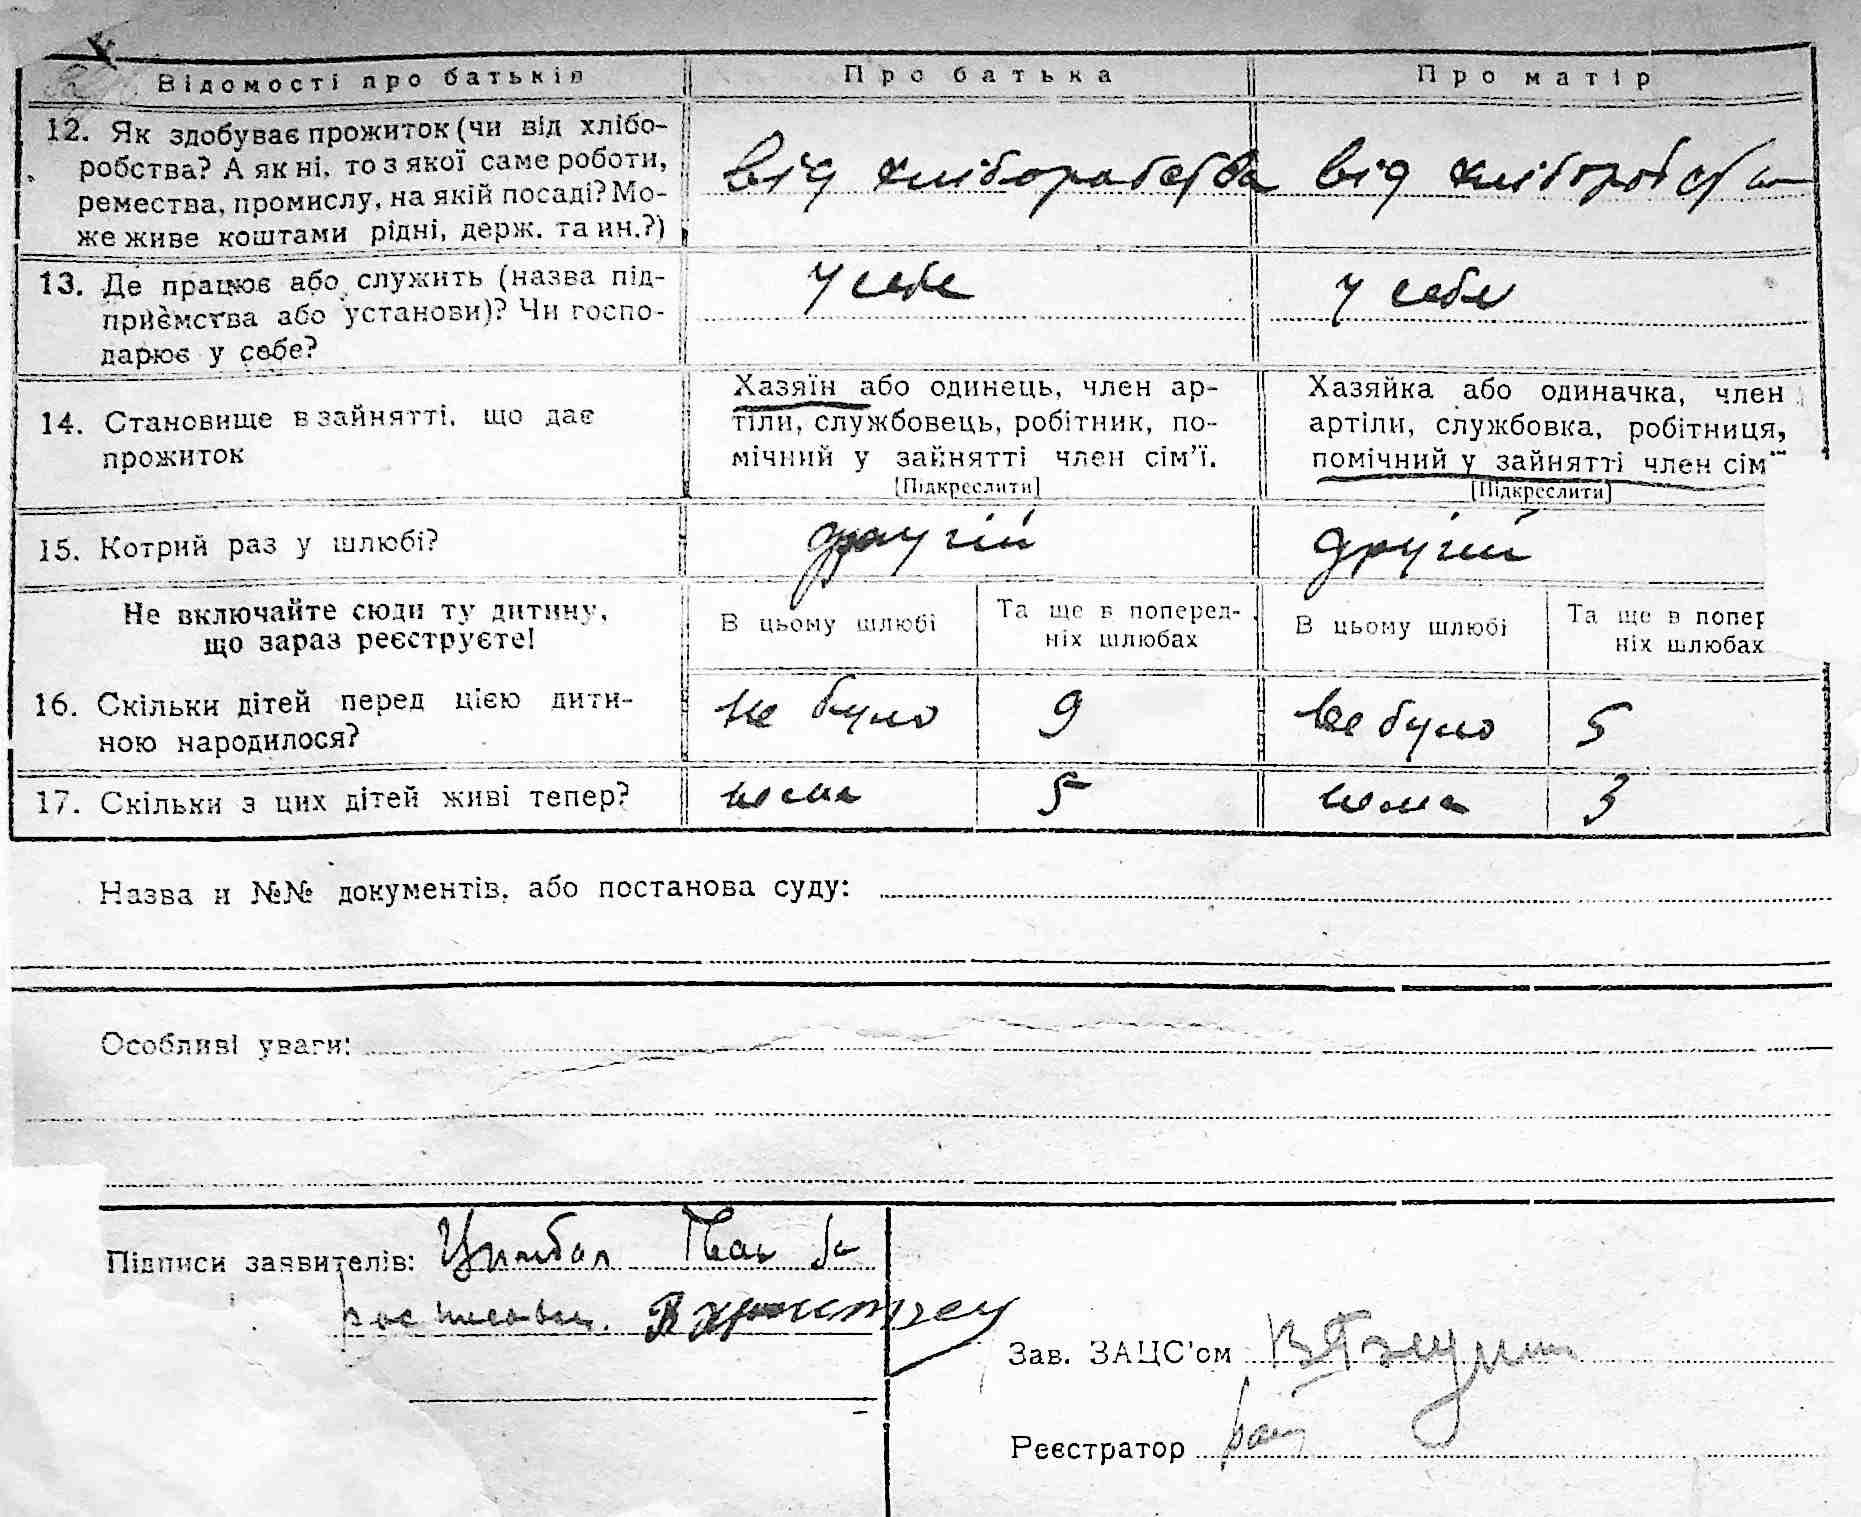 Відомості про батьків Про батька Про матір
12. Як здобуває прожиток (чи від хлібо-
робства? А як ні, то з якої саме роботи,
ремества, промислу, на якій посаді? Мо-
же живе коштами рідні, держ. та ин.?)
від хліборобства від хліборобства
13. Де працює або служить (назва під-
приємства або установи)? Чи госпо-
дарює у себе?
у себе у себе
14. Становище в зайнятті, що дає
прожиток
Хазяїн або одинець, член ар-
тіли, службовець, робітник, по-
мічний у зайнятті член сім'ї.
[Підкреслити]
Хазяйка або одиначка, член
артіли, службовка, робітниця,
помічний у зайнятті член сім'ї
[Підкреслити]
15. Котрий раз у шлюбі? другій другій
Не включайте сюди ту дитину,
що зараз реєструєте!
В цьому шлюбі
Та ще в поперед-
ніх шлюбах
В цьому шлюбі
Та ще в попер
ніх шлюбах
16. Скільки дітей перед цією дити-
ною народилося?
не було 9 не було 5
17. Скільки з цих дітей живі тепер? нема 5 нема 3
Назва и №№ документів, або постанова суду:
Особливі уваги:
Підписи заявителів: Цимбал
Зав. ЗАЦС'ом
Реєстратор